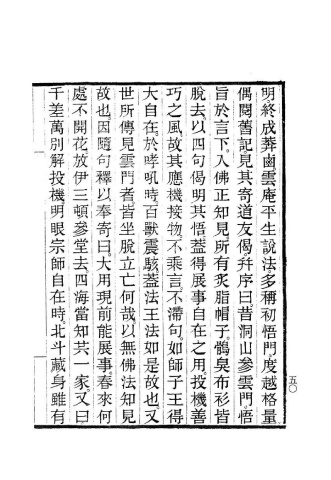 明終成莽鹵雲庵平生說法多稱初悟門度越格量
偶閱舊記見其寄道友偈并序曰昔洞山參雲門悟
旨於言下入佛正知見所有炙脂帽子鶻臭布衫皆
脫去以四句偈明其悟蓋得展事自在之用投機善
巧之風故其應機接物不乘言不滯句如師子王得
大自在於哮吼時百獸震駭蓋法王法如是故也又
世所傳見雲門者皆坐脫立亡何哉以無佛法知見
故也因隨句釋以奉寄曰大用現前能展事春來何
處不開花放伊三頓參堂去四海當知共一家又曰
千差萬別解投機明眼宗師自在時北斗藏身雖有
五〇